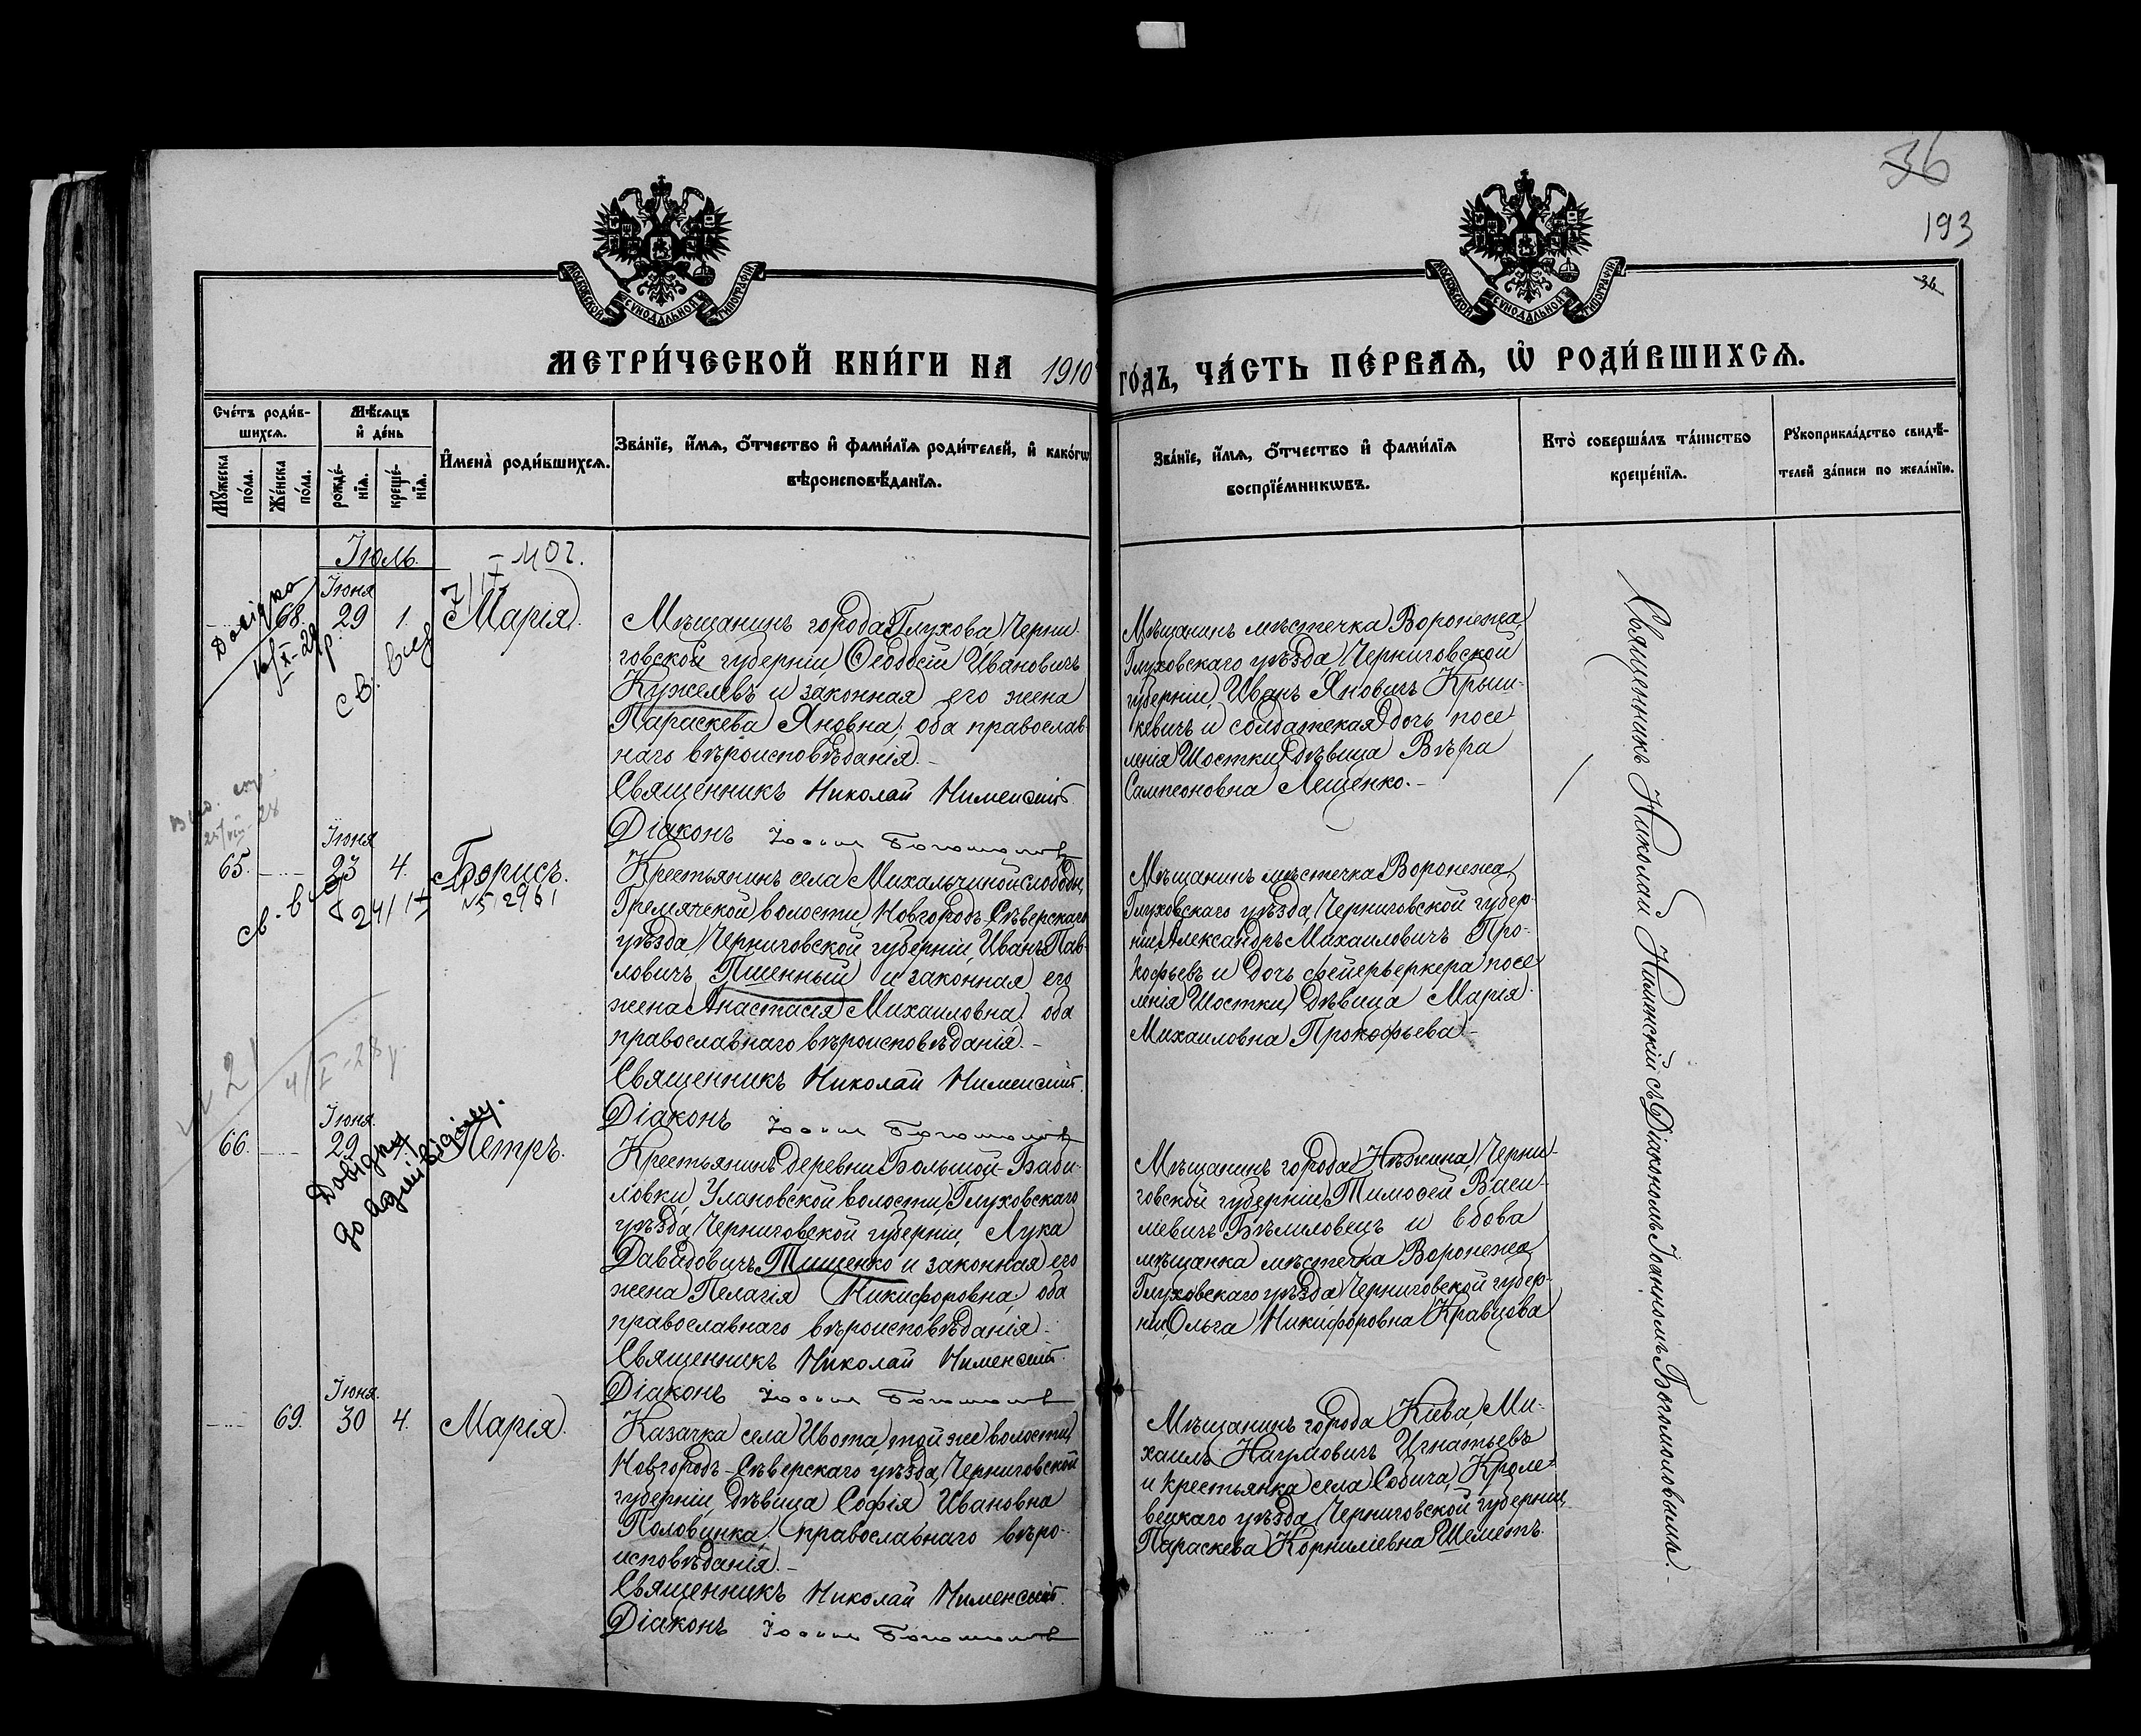 36
193
36
МОСКОВСКОЙ СУНОДАЛЬНОЙ ТИПОГРАФІИ
МОСКОВСКОЙ СУНОДАЛЬНОЙ ТИПОГРАФІИ
МЕТРИ́ЧЕСКОЙ КНИ́ГИ НА 1910 ГО́ДЪ, ЧА́СТЬ ПЕ́РВАѦ, Ѽ РОДИ́ВШИХСѦ.
Сче́тъ роди́в-
шихсѧ.
Мѣ́сѧцъ
и҆ де́нь
Мꙋ́жеска
по́ла.
Же́нска
по́ла.
рожде́-
нїѧ.
креще́-
нїѧ.
И҆мена̀ роди́вшихсѧ.
Зва́нїе, и҆́мѧ, ѻ҆́тчество и҆ фами́лїѧ роди́телей, и҆ како́гѡ
вѣроисповѣ́данїѧ.
Зва́нїе, и҆́мѧ, ѻ҆́тчество и҆ фами́лїѧ
воспрїе́мникѡвъ.
Кто̀ соверша́лъ та́инство
креще́нїѧ.
Рꙋкоприкла́дство свидѣ́-
телей за́писи по жела́нїю.
Іюль.
Іюня
68. 29 1. Марія.
Мѣщанинъ города Глухова, Черни-
говской губерніи, Ѳеодосій Ивановичъ
Кужелевъ и законная его жена
Параскева Яновна, оба православ-
наго вѣроисповѣданія.-
Священникъ Николай Нименскій.
Діаконъ Іоаннъ Богомоловъ
Мѣщанинъ мѣстечка Воронежа,
Глуховскаго уѣзда, Черниговской
губерніи, Иванъ Яновичъ Крыш-
кевичъ и солдатская дочь посе-
ленія Шостки, дѣвица Вѣра
Сампсоновна Лещенко.-
Довідка
св. вид
Іюня
65. 23 4. Борисъ.
Крестьянинъ села Михальчиной-Слободы,
Гремячской волости, Новгородъ-Сѣверскаго
уѣзда, Черниговской губерніи, Иванъ Пав-
ловичъ Пшенный и законная его
жена Анастасія Михаиловна, оба
православнаго вѣроисповѣданія.-
Священникъ Николай Нименскій.
Діаконъ Іоаннъ Богомоловъ
Мѣщанинъ мѣстечка Воронежа,
Глуховскаго уѣзда, Черниговской губер-
ніи, Александръ Михаиловичъ Про-
кофьевъ и дочь фейерверкера посе-
ленія Шостки, дѣвица Марія
Михаиловна Прокофьева.-
Іюня.
66. 29 Петръ.
Довідку
до
Крестьянинъ деревни Большой-Баби-
ловки, Улановской волости, Глуховскаго
уѣзда, Черниговской губерніи, Лука
Давидовичъ Тищенко и законная его
жена Пелагія Никифоровна, оба
православнаго вѣроисповѣданія.
Священникъ Николай Нименскій.
Діаконъ Іоаннъ Богомоловъ
Мѣщанинъ города Нѣжина, Черни-
говской губерніи, Тимоѳей Васи-
ліевичъ Бѣлиловецъ и вдова
мѣщанка мѣстечка Воронежа,
Глуховскаго уѣзда, Черниговской губер-
ніи, Ольга Никифоровна Кравцова
Іюня.
69. 30 4. Марія.
Казачка села Ивота, той же волости,
Новгородъ-Сѣверскаго уѣзда, Черниговской
губерніи, дѣвица Софія Ивановна
Половинка, православнаго вѣро-
исповѣданія.-
Священникъ Николай Нименскій.
Діаконъ Іоаннъ Богомоловъ
Мѣщанинъ города Кіева, Ми-
хаилъ Наумовичъ Игнатьевъ
и крестьянка села Собича, Кроле-
вецкаго уѣзда, Черниговской губерніи,
Параскева Корниліевна Шеметъ.
Священникъ Николай Нименскій съ Діакономъ Іоанномъ Богомоловымъ.